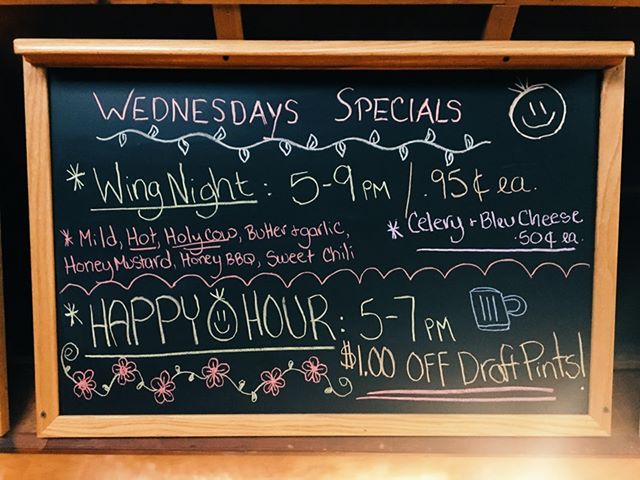 WEDNESDAYS SPECIALS
* Wing Night: 5-9 PM / .95¢ ea.
* Mild, Hot, Holy Cow, Butter + garlic,
Honey Mustard, Honey BBQ, Sweet Chili
* Celery + Bleu Cheese
.50¢ ea.
* HAPPY HOUR: 5-7 PM
$1.00 OFF Draft Pints!